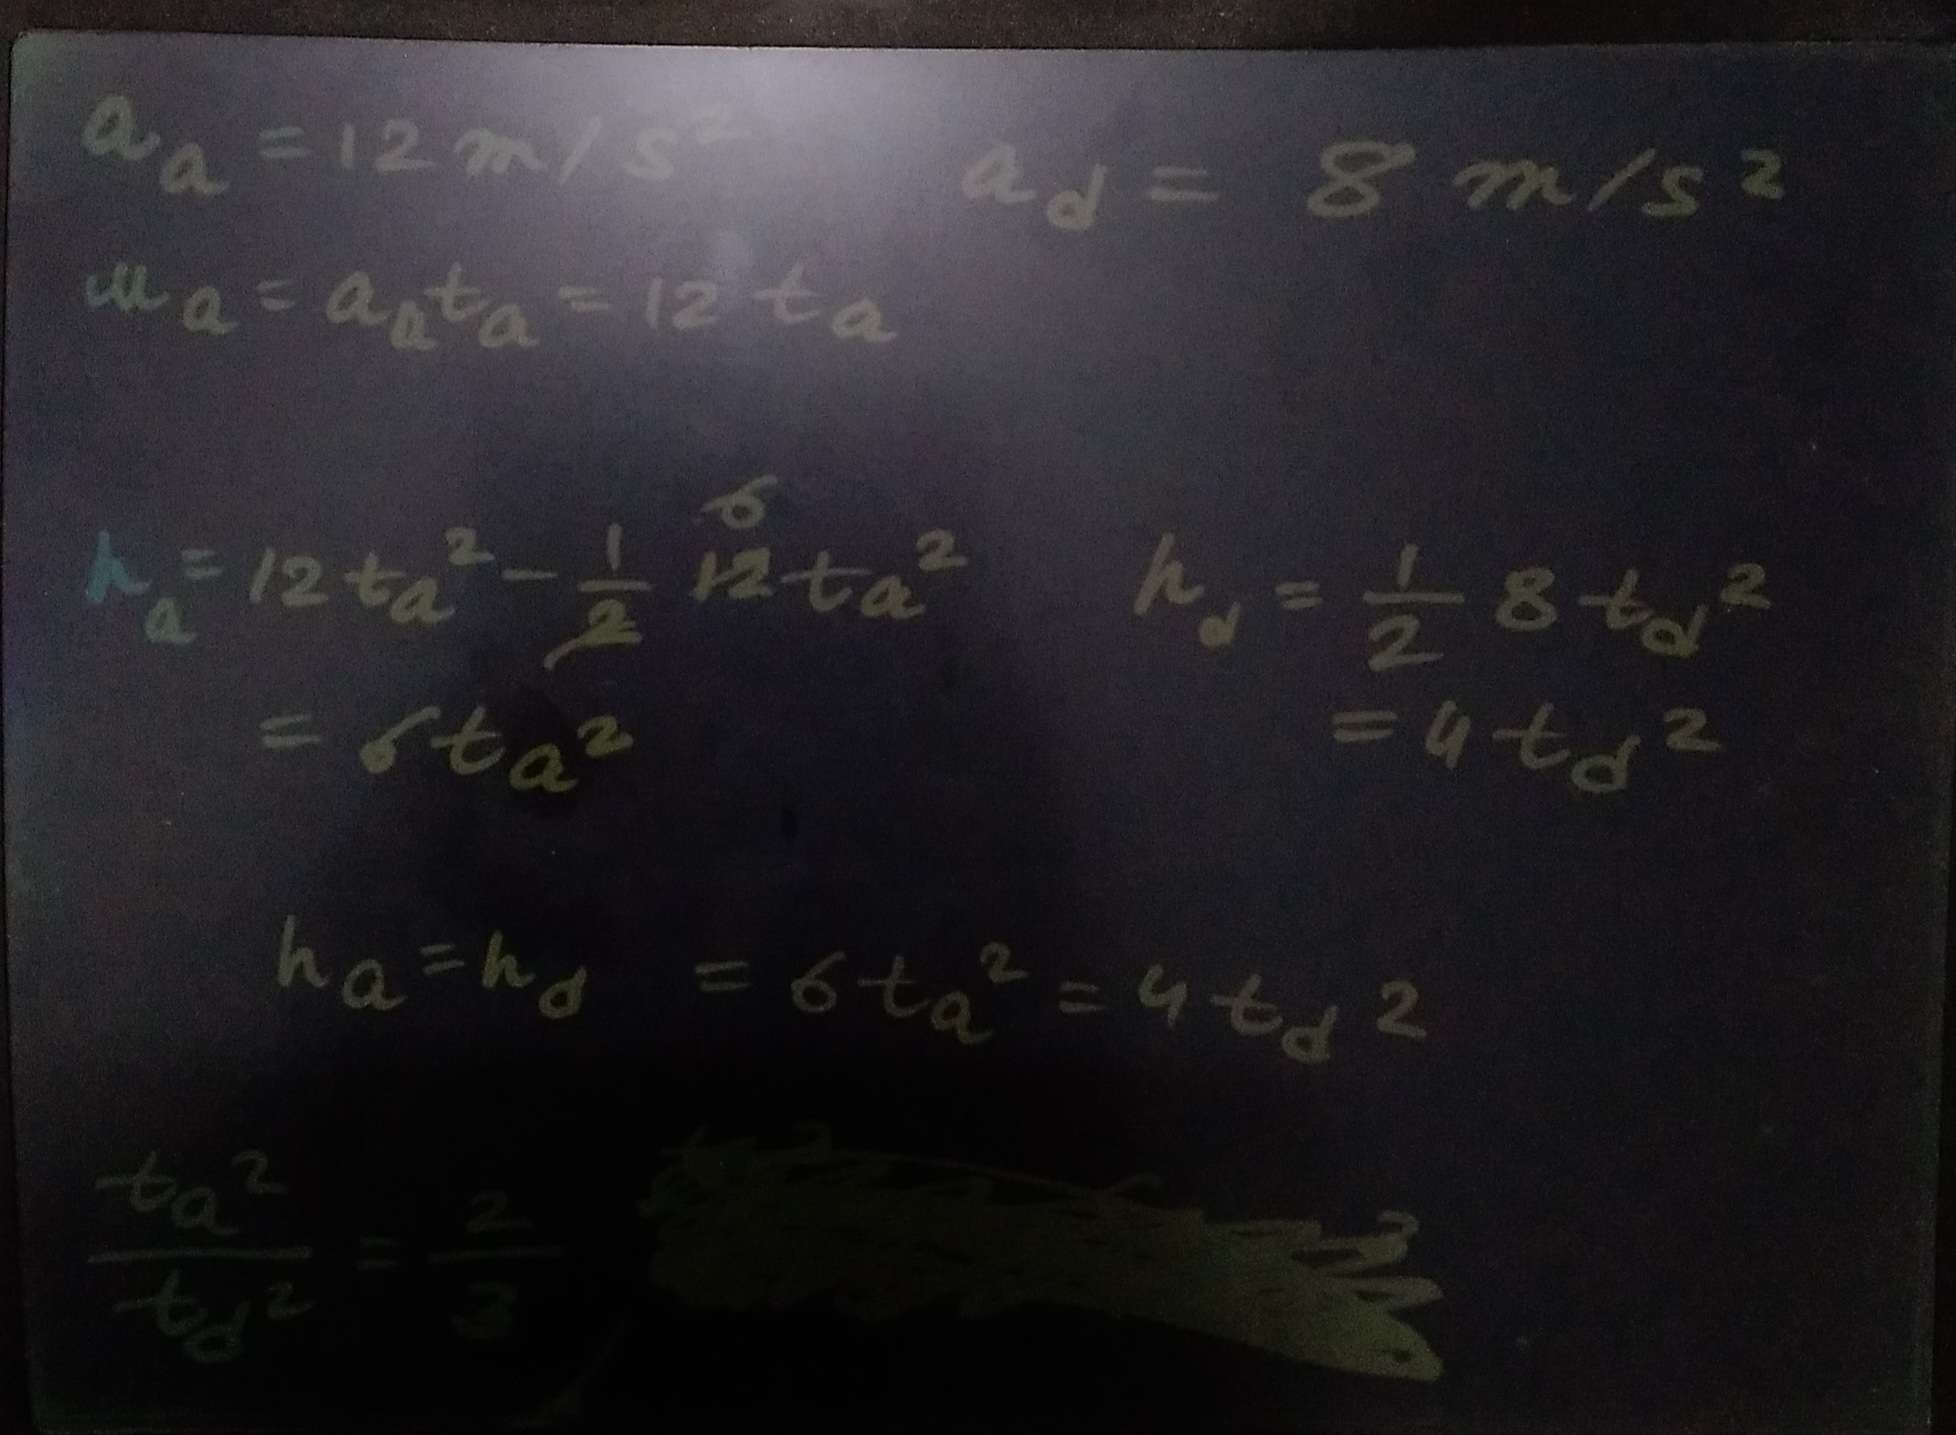 a_a = 12 m/s² a_d = 8 m/s²
u_a = a_a t_a = 12 t_a
6
h_a = 12 t_a² - 1/2 12 t_a² h_d = 1/2 8 t_d²
= 6 t_a² = 4 t_d²
h_a = h_d = 6 t_a² = 4 t_d 2
t_a²/t_d² = 2/3